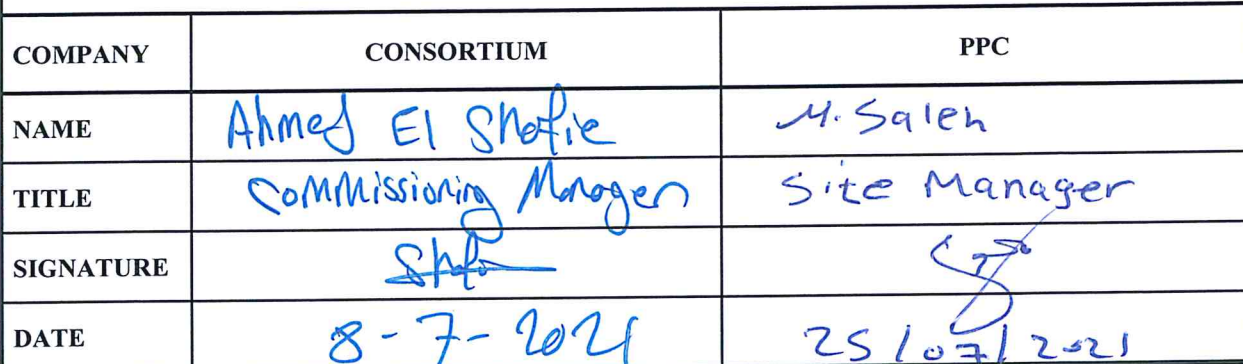 COMPANY CONSORTIUM PPC
NAME Ahmed El Shafie M. Saleh
TITLE Commissioning Manager Site Manager
SIGNATURE
DATE 8-7-2021 25/07/2021